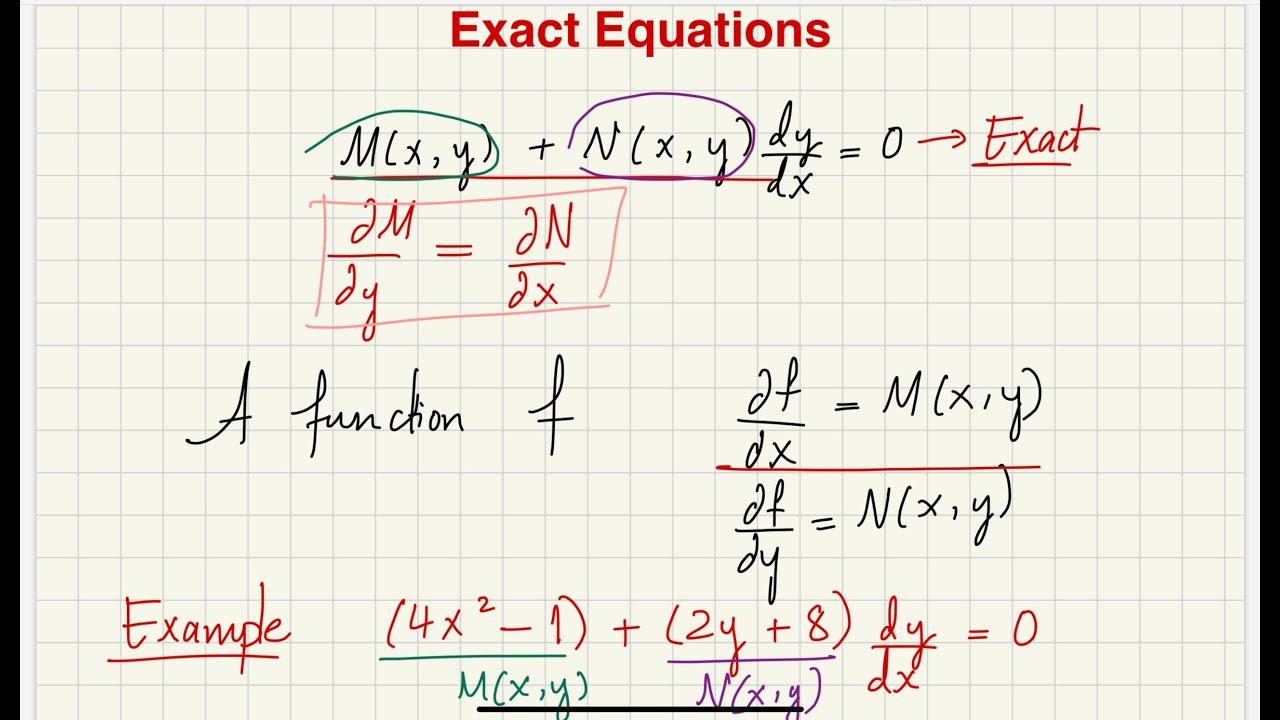 Exact Equations
M(x,y) + N(x,y) dy/dx = 0 → Exact
∂M/∂y = ∂N/∂x
A function f
∂f/∂x = M(x,y)
∂f/∂y = N(x,y)
Example (4x² - 1) + (2y + 8) dy/dx = 0
M(x,y) N(x,y)